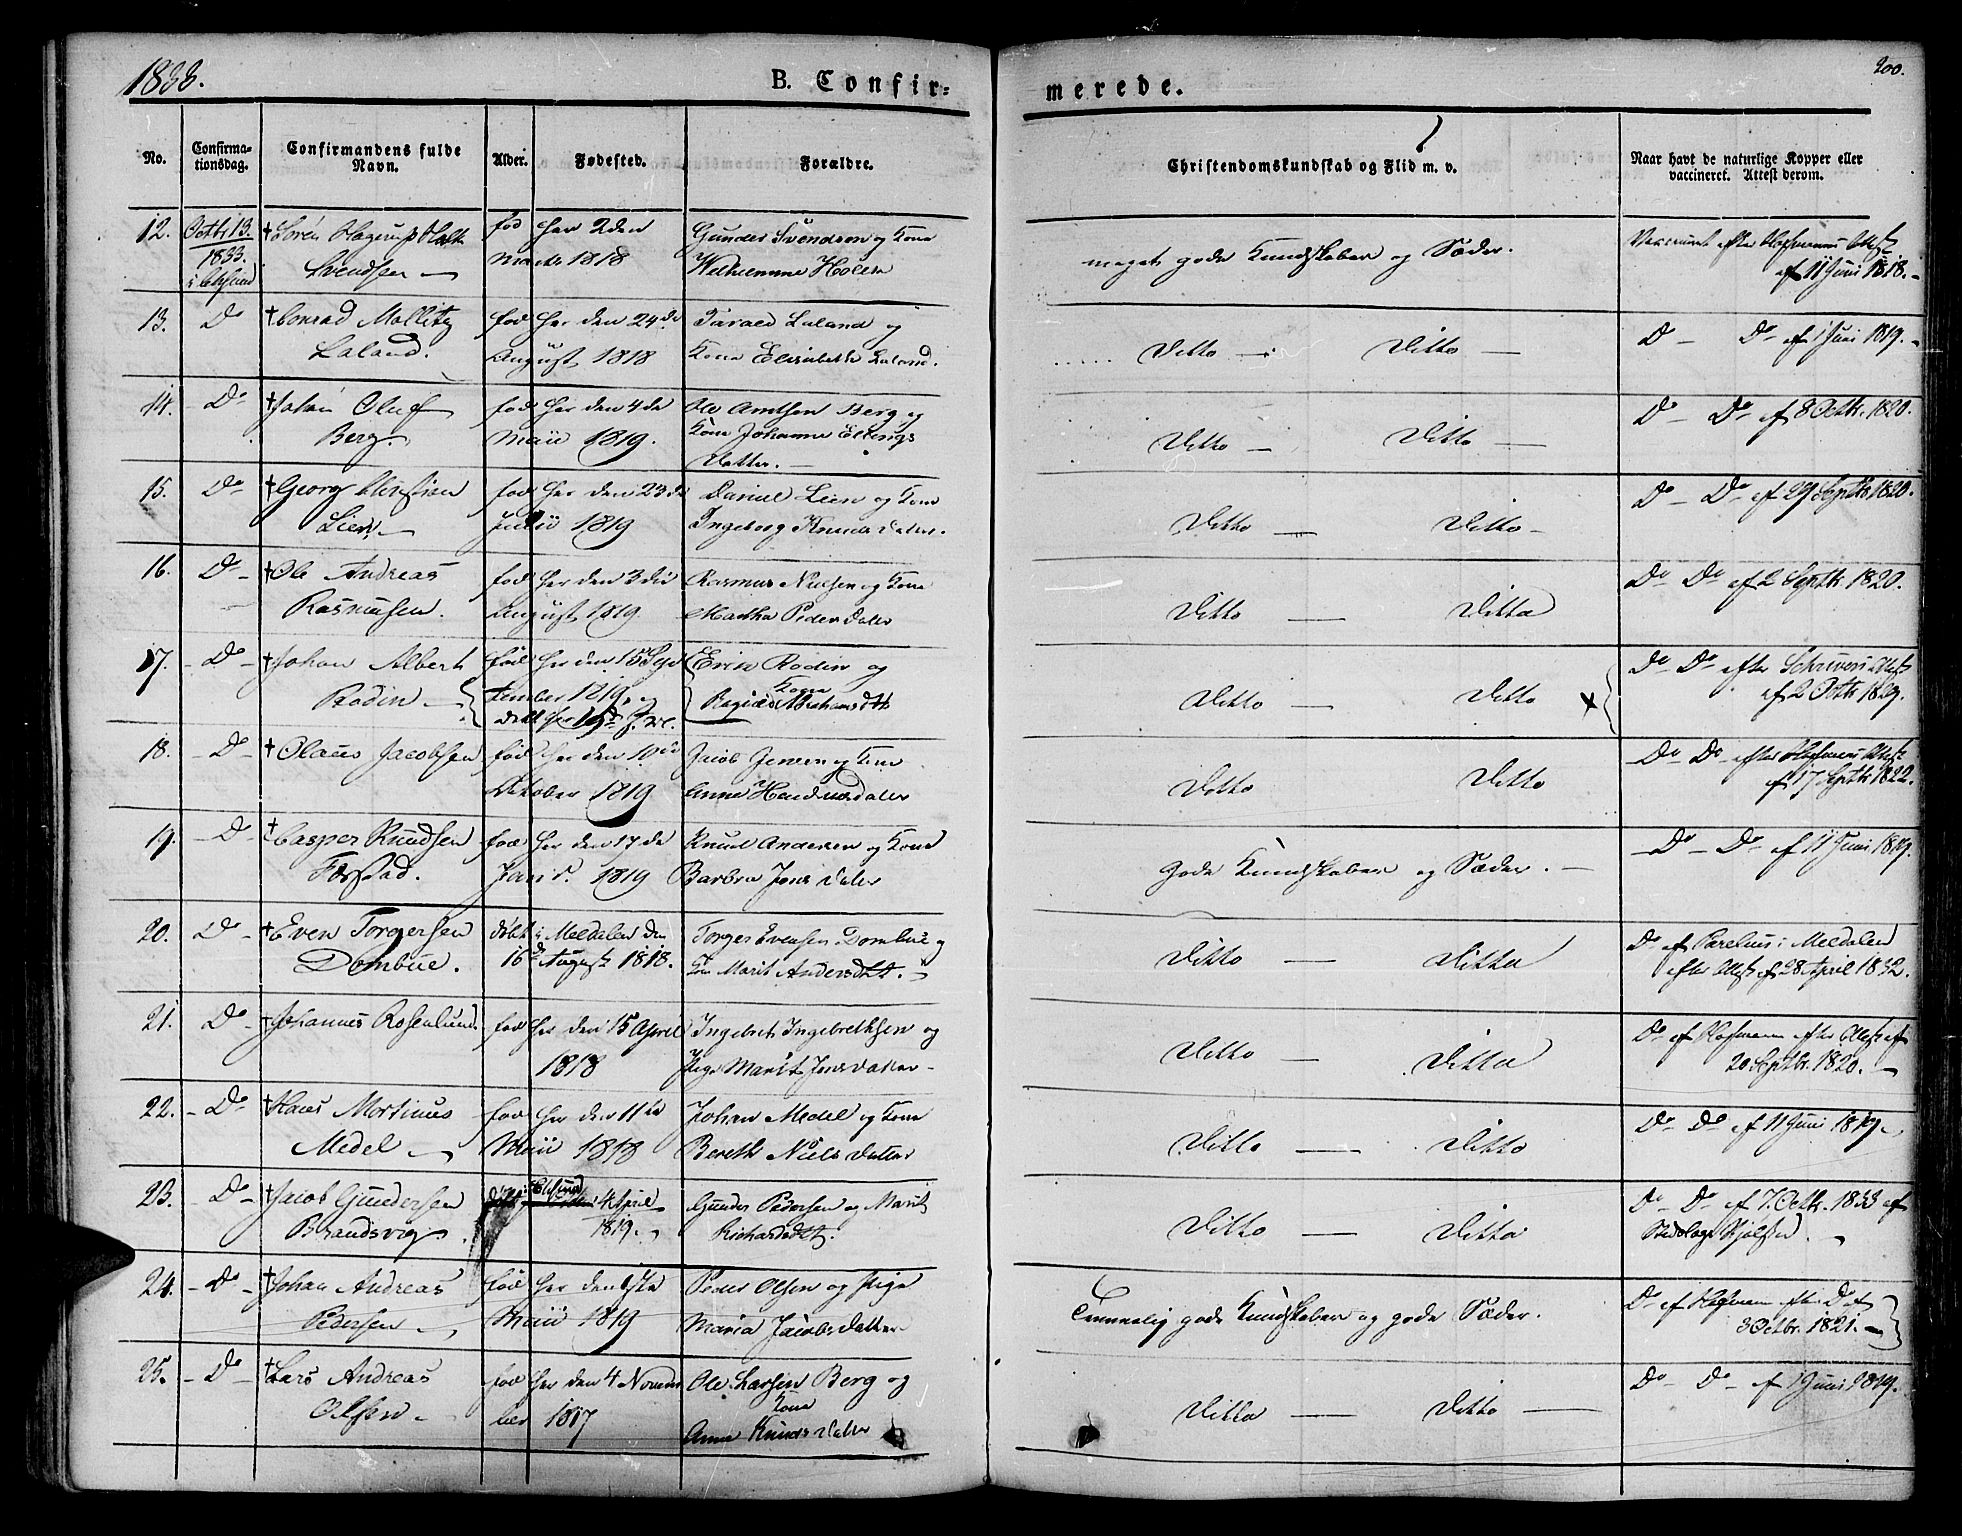 1833.
B. Confir-
merede.
200.
No.
Confirma-
tionsdag.
Confirmandens fulde
Navn.
Alder.
Fødested.
Forældre.
Christendomskundskab og Flid m. v.
Naar havt de naturlige Kopper eller
vaccineret. Attest derom.
12. Octbr 13. Sørén Hagerup Holth
1833. Svendsen
fød her 2den
Marts 1818
Gunder Svendsen og Kone
Wilhelmine Holth
meget gode Kundskaber og Sæder.
af 11 Juni 1818.
13. Do Conrad Mollitz
Laland.
fød her den 24de
August 1818
Tarald Laland og
Kone Elisabeth Laland.
Ditto Ditto
Do Do af 1 Juni 1819.
14. Do Johan Oluf
Berg
fød her den 4de
Maii 1819.
Ole Arntsen Berg og
Kone Johanne Ellings
Datter.
Ditto Ditto
Do Do af 8 Octbr. 1820.
15. Do Georg Christian
Lien
fød her den 23de
Julii 1819
Daniel Lien og Kone
Ingeborg Knuds Datter.
Ditto Ditto
Do Do af 29 Septbr 1820.
16. Do Ole Andreas
Rasmusen.
fød her den 3die
August 1819.
Rasmus Nielsen og Kone
Martha Peders Datter
Ditto Ditto
Do Do af 2 Septbr. 1820.
17. Do Johan Albert
Rodin
fød her den 15 Sep
tember 1819. og
Erich Rodin og
Kone
Abrahamsdtt
Ditto Ditto
Do Do efter Schrivers Attest
af 2 Octbr 1829.
18. Do Olaus Jacobsen
fød her den 10de
October 1819
Jacob Jensen og Kone
Anne Hendricsdatter
Ditto Ditto
Do Do efter Hofmans Attest
af 17 Septbr 1822.
19. Do Casper Knudsen
fød her den 17de
1819
Knud Andersen og Kone
Barbra Jens Datter
gode Kundskaber og Sæder.
Do Do af 11 Juni 1819.
20. Do Even Torgersen
Dombue.
døbt i Meldalen den
16de August 1818.
Torger Evensen Dombue og
Kone Marit Andersdtt.
Ditto Ditto
Do af Parelius i Meldalen
efter Attest af 28 April 1832.
21. Do Johannes Rosenlund
fød her den 15 April
1818
Ingebret Ingebrethsen og
Pige Marit Jensdatter
Ditto Ditto
Do af Hofman efter Attest af
20 Septbr. 1820.
22. Do Hans Mortinus
Medel
fød her den 11te
Maii 1818
Johan Medel og Kone
Bereth Niels Datter
Ditto Ditto
Do Do af 11 Juni 1819.
23. Do Jacob Gundersen
Brandsvig.
døbt 4 April
1819.
Gunder Pedersen og Marit
Richardsdtt.
Ditto Ditto
Do Do af 7. Octbr. 1833 af
24. Do Johan Andreas
Pedersen
fød her den 1ste
Maii 1819
Peder Olsen og Pige
Maria Jacobsdatter
Temmelig gode Kundskaber og gode Sæder.
Do af Hofman efter Do af
3 Octbr. 1821.
25. Do Lars Andreas
Olsen
fød her den 4 Novem
ber 1817
Ole Larsen Berg og
Kone
Anne Knuds Datter
Ditto Ditto
Do Do af 1 Juni 1819.